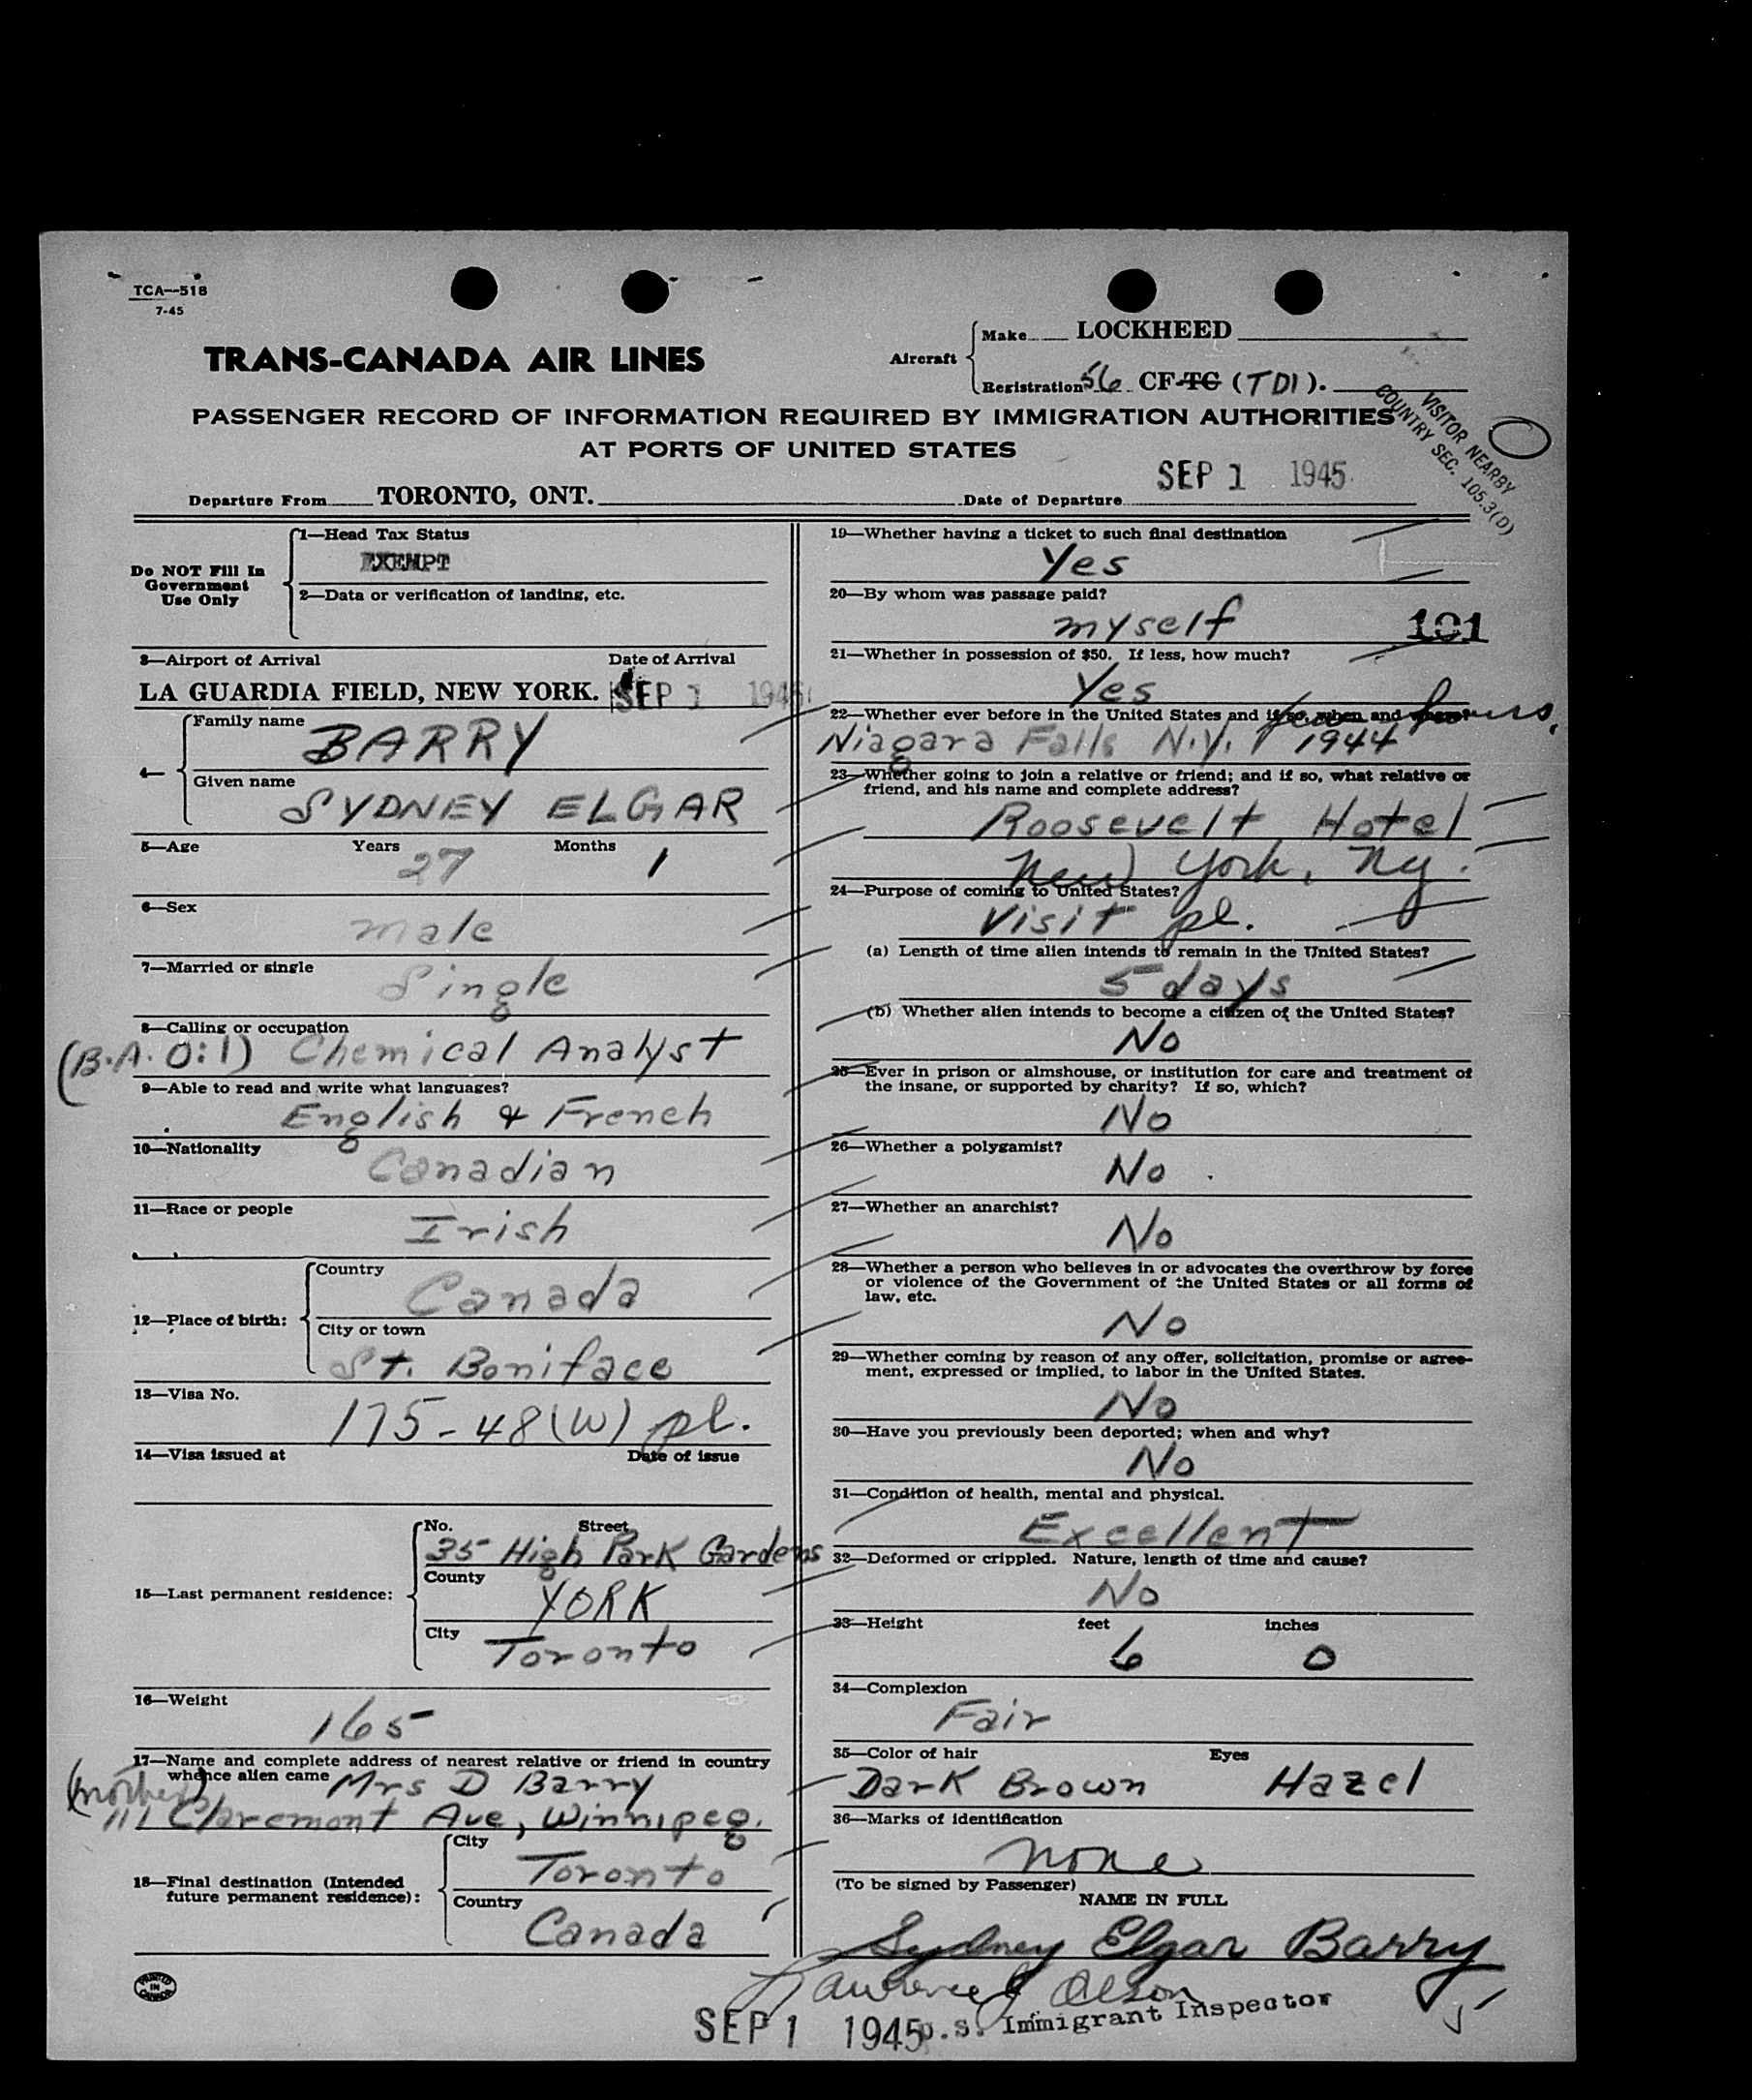 TCA—518
7-45
TRANS-CANADA AIR LINES
Aircraft
Make LOCKHEED
Registration 56 CF-TC (TDI).
PASSENGER RECORD OF INFORMATION REQUIRED BY IMMIGRATION AUTHORITIES
AT PORTS OF UNITED STATES
VISITOR NEARBY
COUNTRY SEC. 105.3(D)
Departure From TORONTO, ONT. Date of Departure SEP 1 1945
Do NOT Fill In
Government
Use Only
1—Head Tax Status
EXEMPT
2—Data or verification of landing, etc.
3—Airport of Arrival Date of Arrival
LA GUARDIA FIELD, NEW YORK. SEP 1 1945
4—
Family name
BARRY
Given name
SYDNEY ELGAR
5—Age Years 27 Months 1
6—Sex
male
7—Married or single
Single
8—Calling or occupation
(B.A. O:1) Chemical Analyst
9—Able to read and write what languages?
English & French
10—Nationality
Canadian
11—Race or people
Irish
12—Place of birth:
Country
Canada
City or town
St. Boniface
13—Visa No.
175-48(W) pl.
14—Visa issued at Date of issue
15—Last permanent residence:
No. Street
35 High Park Gardens
County
YORK
City
Toronto
16—Weight
165
17—Name and complete address of nearest relative or friend in country
whence alien came Mrs D Barry
(mother)
111 Claremont Ave, Winnipeg.
18—Final destination (Intended
future permanent residence):
City
Toronto
Country
Canada
PRINTED
IN
CANADA
19—Whether having a ticket to such final destination
Yes
20—By whom was passage paid?
myself
101
21—Whether in possession of $50. If less, how much?
Yes
22—Whether ever before in the United States and if so, when and where?
few hours,
Niagara Falls N.Y. 1944
23—Whether going to join a relative or friend; and if so, what relative or
friend, and his name and complete address?
Roosevelt Hotel
New York, Ny.
24—Purpose of coming to United States?
Visit pl.
(a) Length of time alien intends to remain in the United States?
5 days
(b) Whether alien intends to become a citizen of the United States?
No
25—Ever in prison or almshouse, or institution for care and treatment of
the insane, or supported by charity? If so, which?
No
26—Whether a polygamist?
No
27—Whether an anarchist?
No
28—Whether a person who believes in or advocates the overthrow by force
or violence of the Government of the United States or all forms of
law, etc.
No
29—Whether coming by reason of any offer, solicitation, promise or agree-
ment, expressed or implied, to labor in the United States.
No
30—Have you previously been deported; when and why?
No
31—Condition of health, mental and physical.
Excellent
32—Deformed or crippled. Nature, length of time and cause?
No
33—Height feet inches
6 0
34—Complexion
Fair
35—Color of hair Eyes
Dark Brown Hazel
36—Marks of identification
none
(To be signed by Passenger)
NAME IN FULL
Sydney Elgar Barry
Lawrence J Olson
SEP 1 1945 U.S. Immigrant Inspector